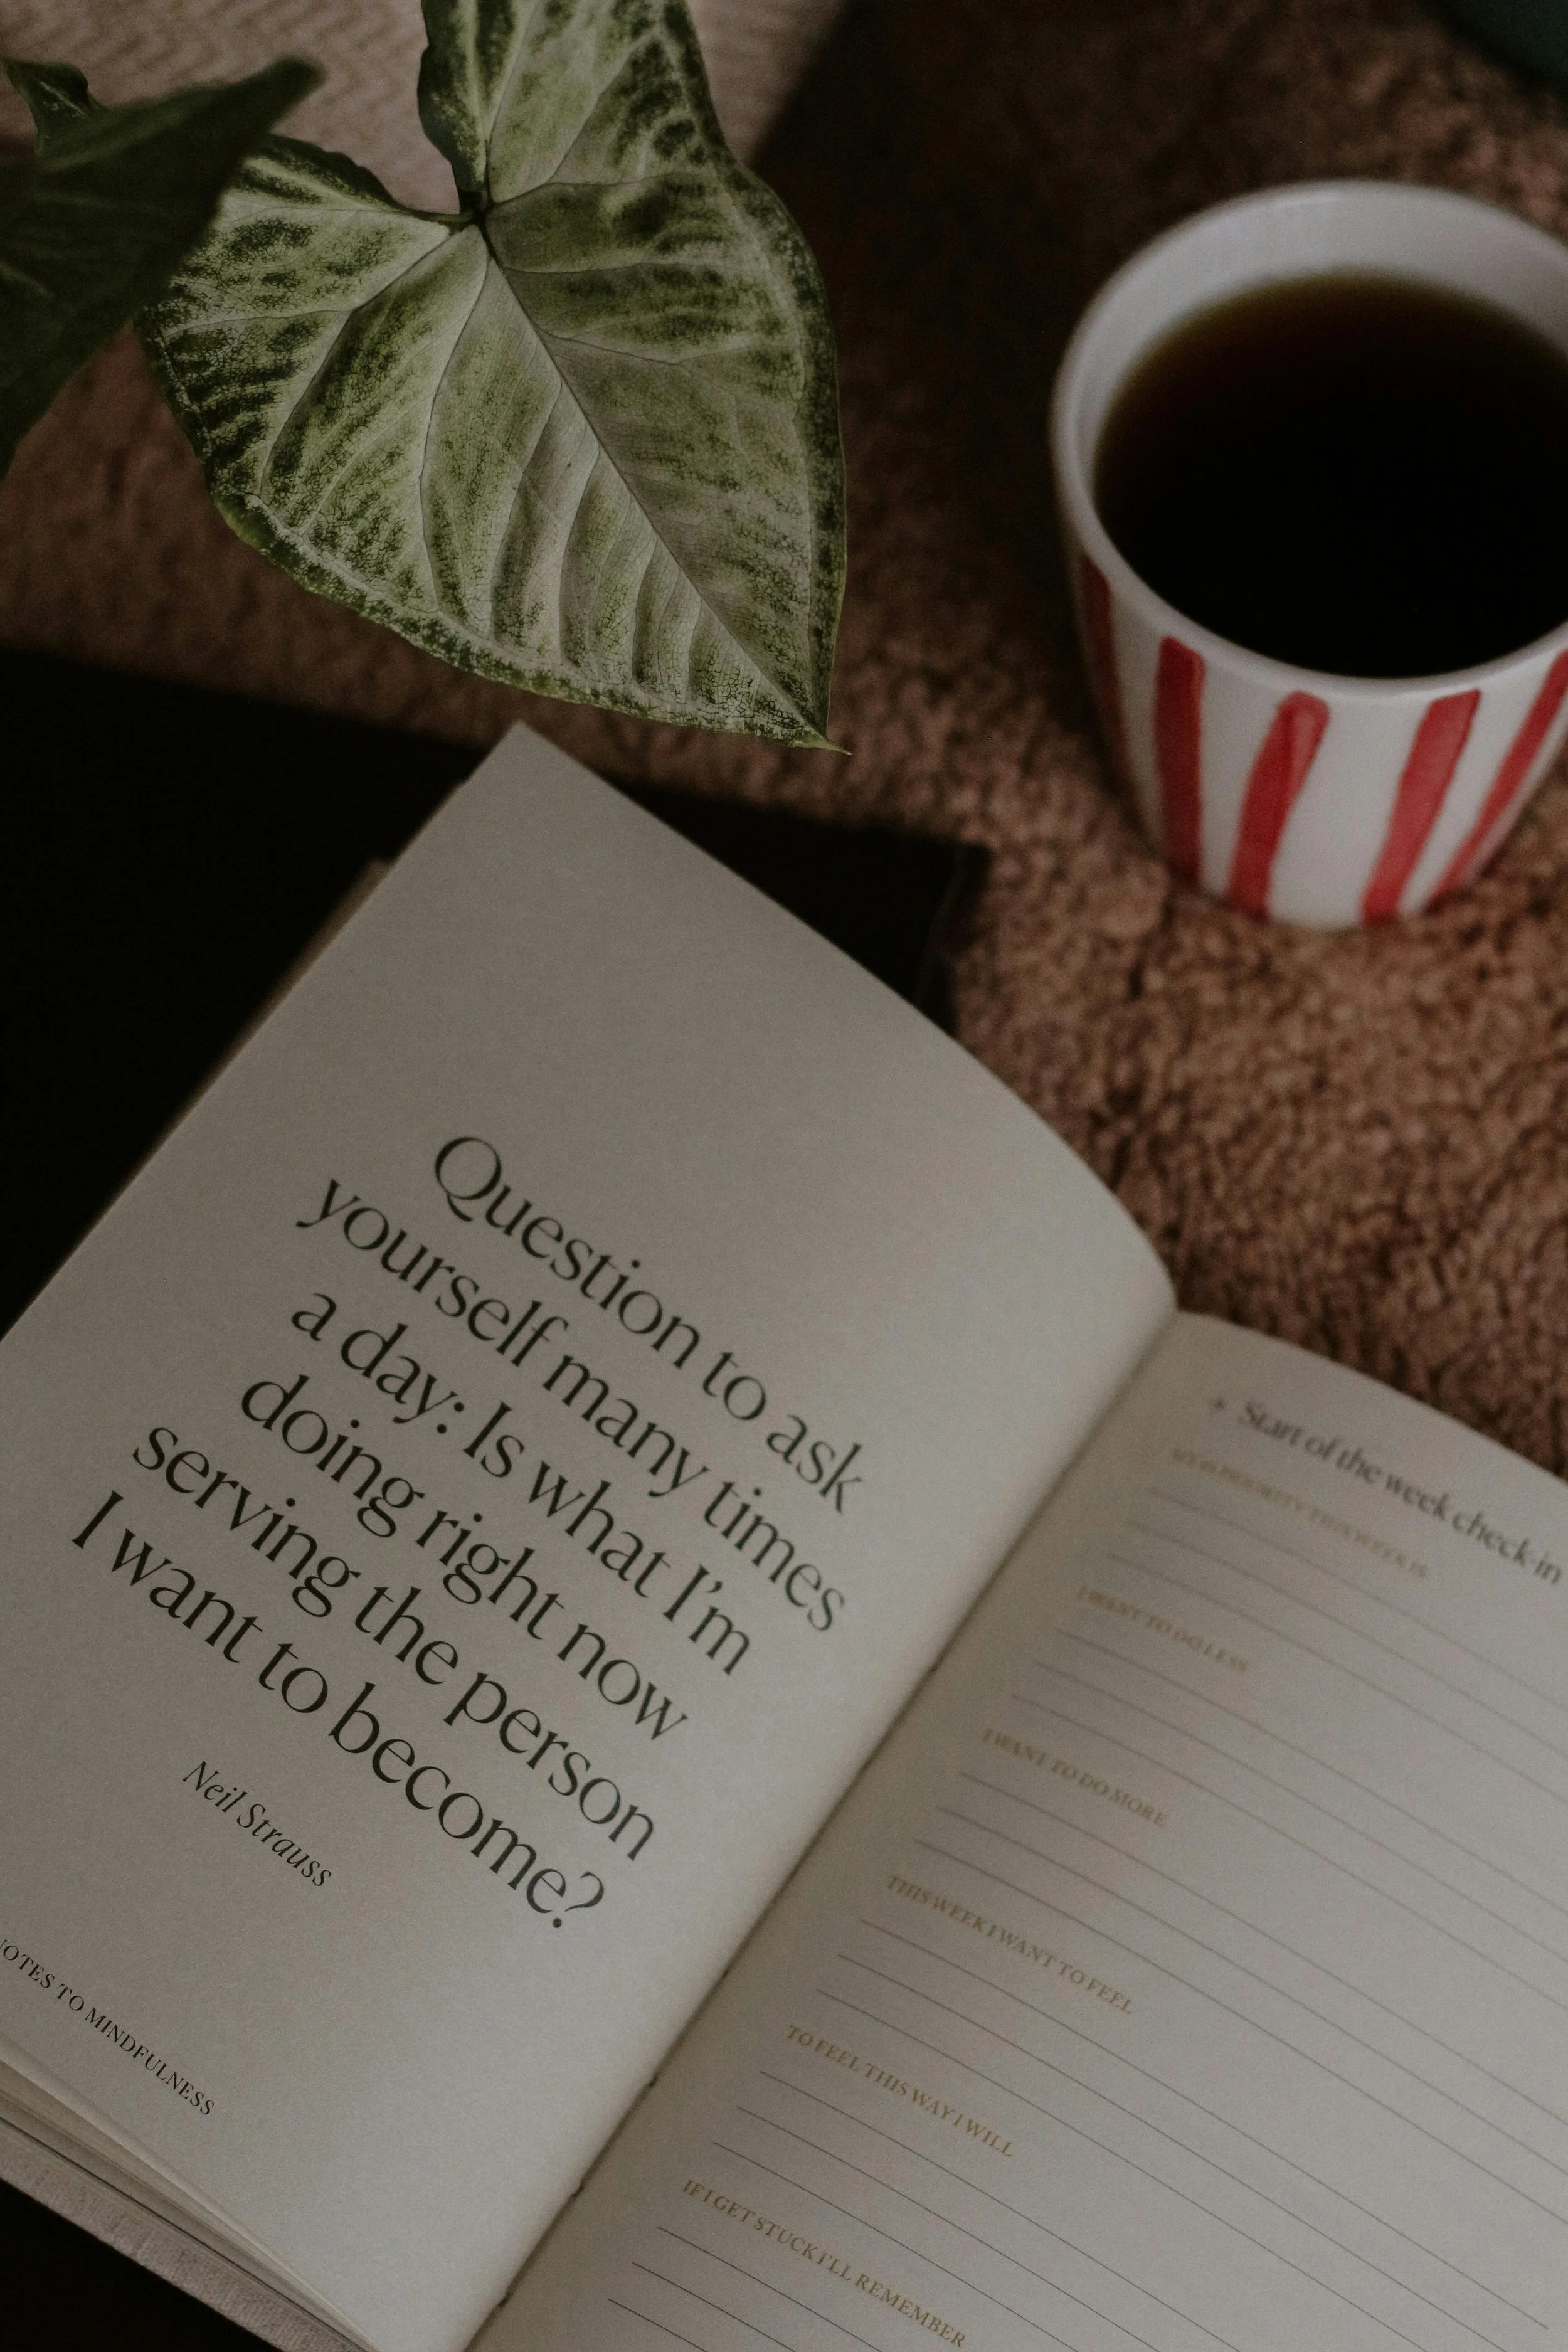 Question to ask
yourself many times
a day: Is what I'm
doing right now
serving the person
I want to become?
Neil Strauss
NOTES TO MINDFULNESS
Start of the week check-in
MY #1 PRIORITY THIS WEEK IS
I WANT TO DO LESS
I WANT TO DO MORE
THIS WEEK I WANT TO FEEL
TO FEEL THIS WAY I WILL
IF I GET STUCK I'LL REMEMBER